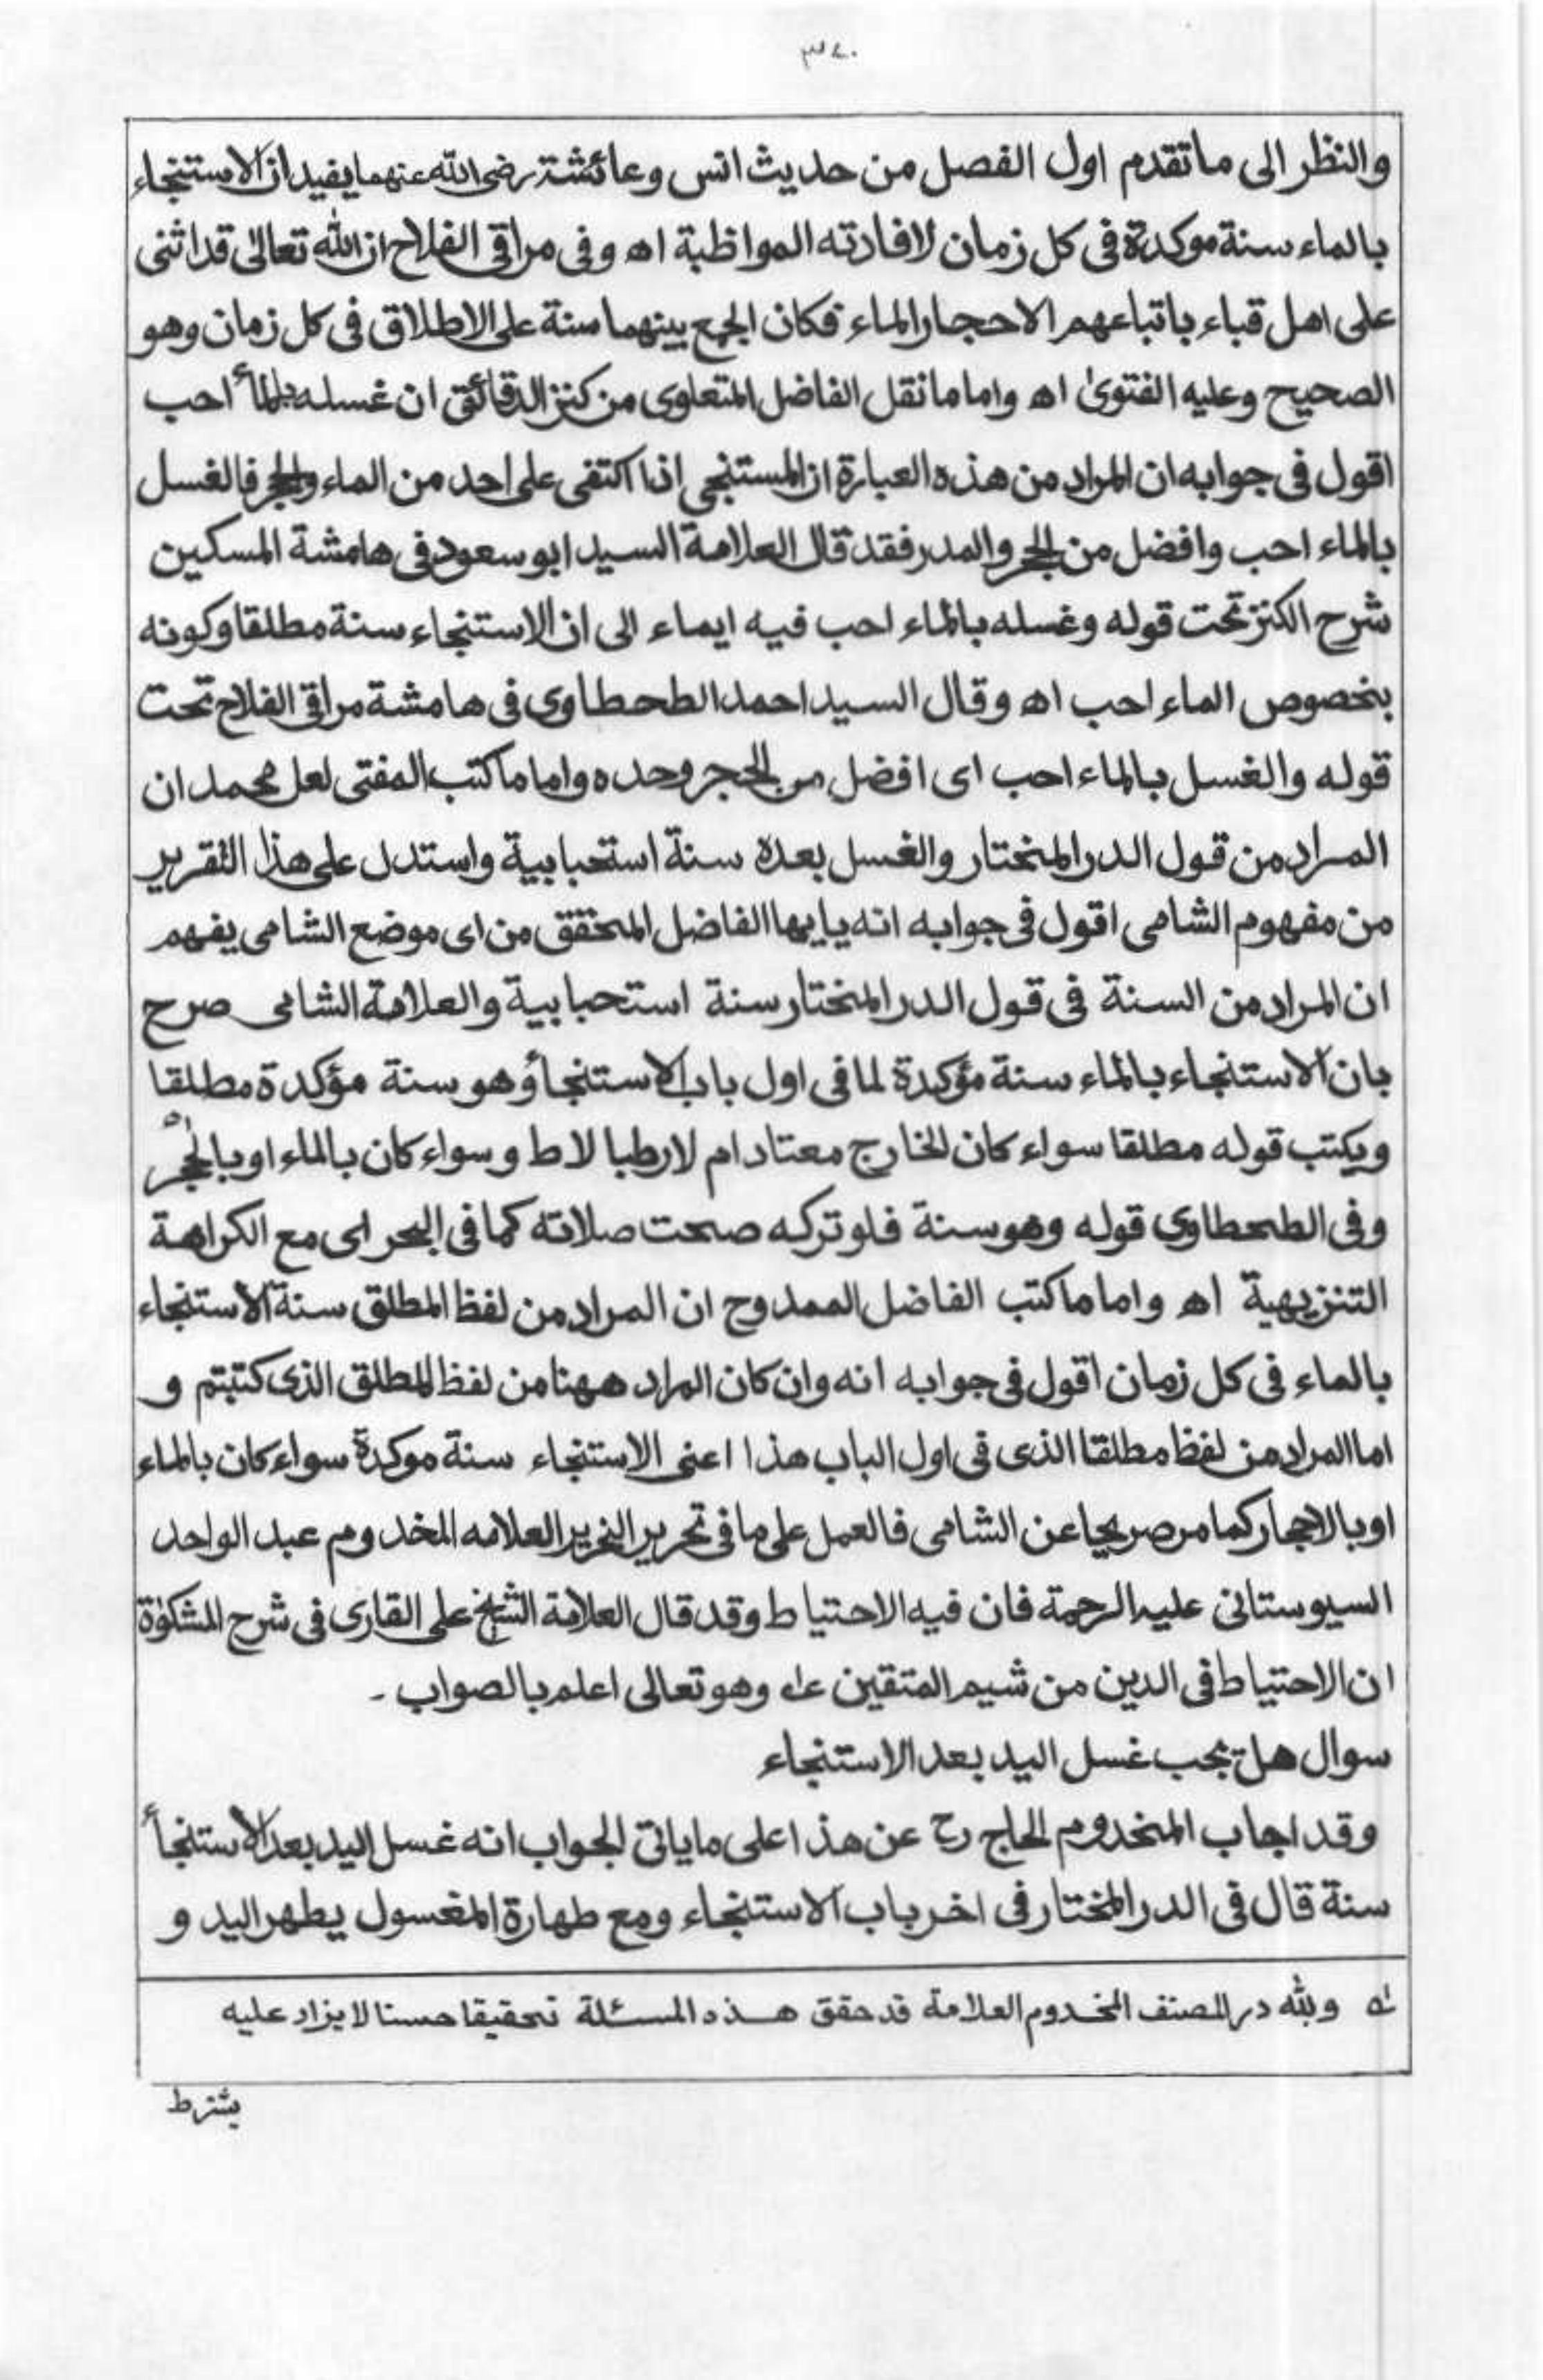 والنظر الى ماتقدم اول الفصل من حديث انس وعائشة رضى الله عنهما يفيد ان الاستنجاء
بالماء سنة موكدة فى كل زمان لافادته المواظبة اه وفى مراقى الفلاح ان الله تعالىٰ قد اثنى
على اهل قباء باتباعهم الاحجار الماء فكان الجمع بينهما سنة على الاطلاق فى كل زمان وهو
الصحيح وعليه الفتوىٰ اه واما ما نقل الفاضل المتعلوى من كنز الدقائق ان غسله بالمأ احب
اقول فى جوابه ان المراد من هذه العبارة ان المستنجى اذا اكتفى على احد من الماء والحجر فالغسل
بالماء احب وافضل من الحجر والمدر فقد قال العلامة السيد ابو سعود فى هامشة المسكين
شرح الكنز تحت قوله وغسله بالماء احب فيه ايماء الى ان الاستنجاء سنة مطلقا وكونه
بخصوص الماء احب اه وقال السيد احمد الطحطاوى فى هامشة مراقى الفلاح تحت
قوله والغسل بالماء احب اى افضل من الحجر وحده واما ما كتب المفتى لعل محمد ان
المراد من قول الدر المختار والغسل بعده سنة استحبابية واستدل على هذا التقرير
من مفهوم الشامى اقول فى جوابه انه يايها الفاضل المحقق من اى موضع الشامى يفهم
ان المراد من السنة فى قول الدر المختار سنة استحبابية والعلامة الشامى صرح
بان الاستنجاء بالماء سنة مؤكدة لما فى اول باب الاستنجأ وهو سنة مؤكدة مطلقا
ويكتب قوله مطلقا سواء كان الخارج معتادا م لا رطبا لا ط وسواء كان بالماء او بالحجر
وفى الطحطاوى قوله وهو سنة فلو تركه صحت صلاته كما فى البحر اى مع الكراهة
التنزيهية اه واما ما كتب الفاضل الممدوح ان المراد من لفظ المطلق سنة الاستنجاء
بالماء فى كل زمان اقول فى جوابه انه وان كان المراد ههنا من لفظ المطلق الذى كتبتم و
اما المراد من لفظ مطلقا الذى فى اول الباب هذا اعنى الاستنجاء سنة موكدة سواء كان بالماء
او بالاحجار كما مر صريحا عن الشامى فالعمل على ما فى تحرير النحرير العلامه المخدوم عبد الواحد
السيوستانى عليه الرحمة فان فيه الاحتياط وقد قال العلامة الشيخ على القارى فى شرح المشكوٰة
ان الاحتياط فى الدين من شيم المتقين وهو تعالى اعلم بالصواب -
سوال هل تجب غسل اليد بعد الاستنجاء
وقد اجاب المخدوم الحاج رح عن هذا على ما ياتى الجواب انه غسل اليد بعد الاستنجأ
سنة قال فى الدر المختار فى اخر باب الاستنجاء ومع طهارة المغسول يطهر اليد و
ولله در المصنف المخدوم العلامة قد حقق هذه المسئلة تحقيقا حسنا لا يزاد عليه
يشترط